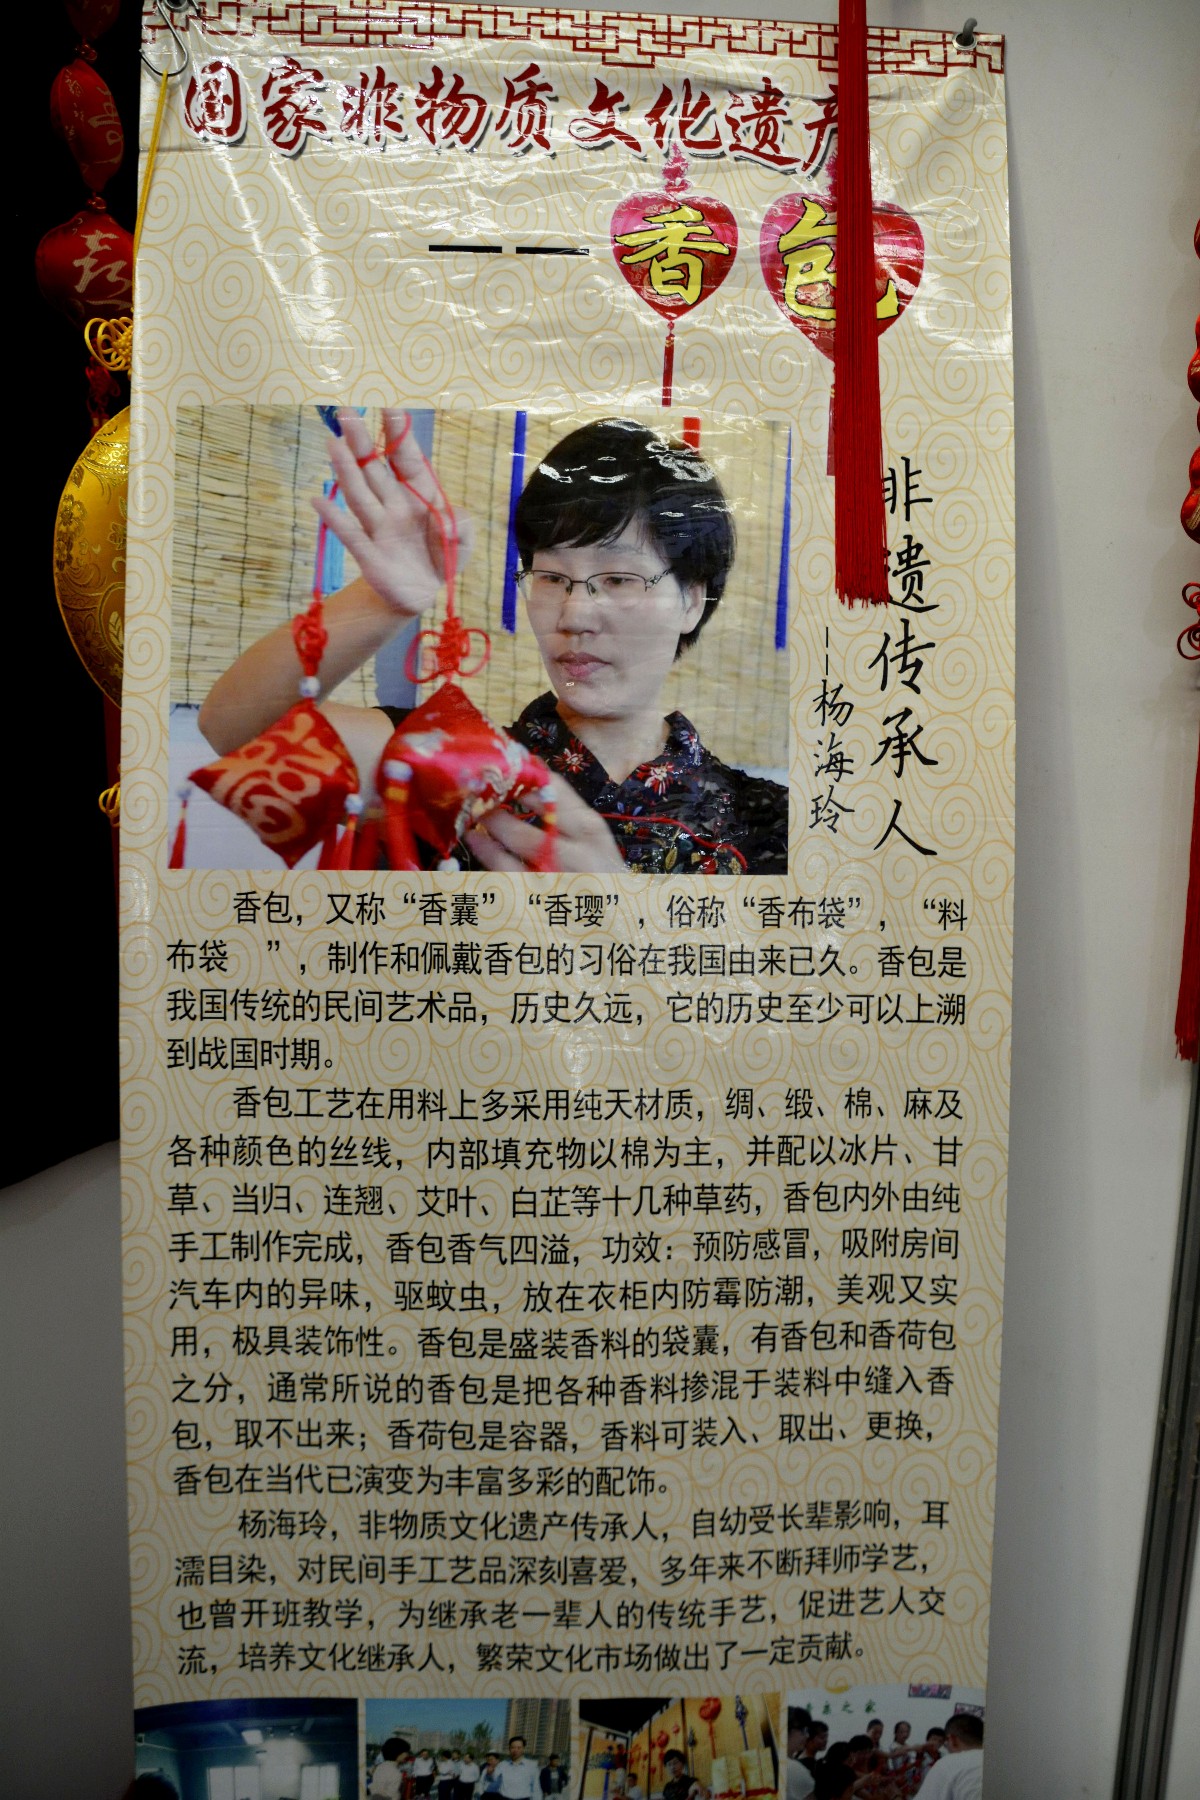 国家非物质文化遗产
——香包
非遗传承人
——杨海玲
香包，又称“香囊”“香璎”，俗称“香布袋”，“料
布袋 ”，制作和佩戴香包的习俗在我国由来已久。香包是
我国传统的民间艺术品，历史久远，它的历史至少可以上溯
到战国时期。
香包工艺在用料上多采用纯天材质，绸、缎、棉、麻及
各种颜色的丝线，内部填充物以棉为主，并配以冰片、甘
草、当归、连翘、艾叶、白芷等十几种草药，香包内外由纯
手工制作完成，香包香气四溢，功效：预防感冒，吸附房间
汽车内的异味，驱蚊虫，放在衣柜内防霉防潮，美观又实
用，极具装饰性。香包是盛装香料的袋囊，有香包和香荷包
之分，通常所说的香包是把各种香料掺混于装料中缝入香
包，取不出来；香荷包是容器，香料可装入、取出、更换，
香包在当代已演变为丰富多彩的配饰。
杨海玲，非物质文化遗产传承人，自幼受长辈影响，耳
濡目染，对民间手工艺品深刻喜爱，多年来不断拜师学艺，
也曾开班教学，为继承老一辈人的传统手艺，促进艺人交
流，培养文化继承人，繁荣文化市场做出了一定贡献。
之家